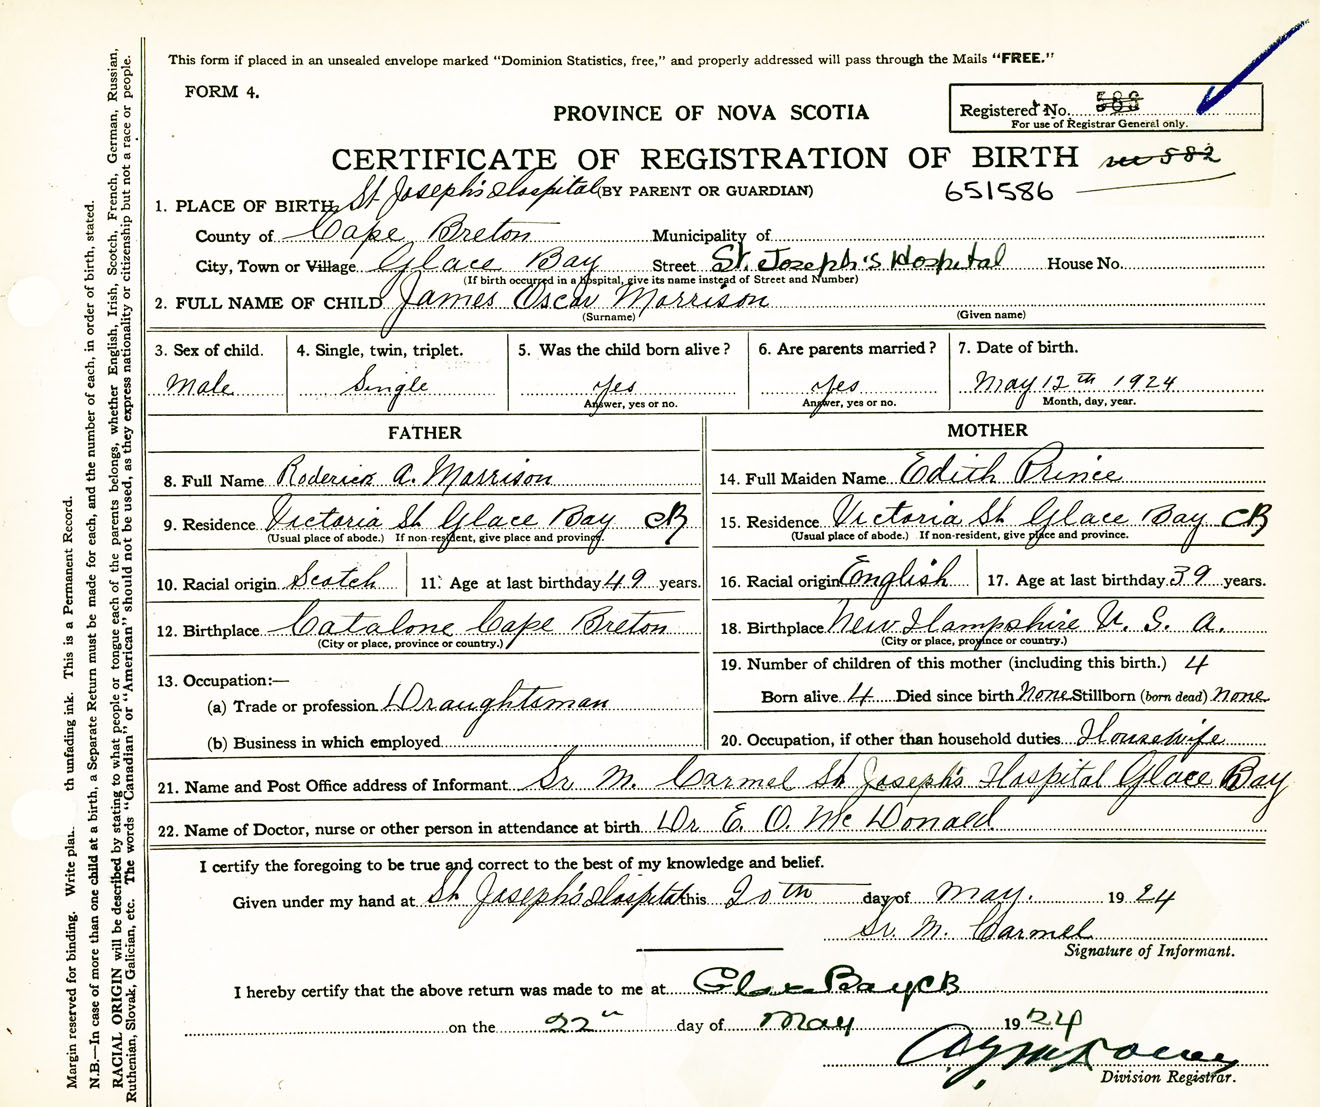 This form if placed in an unsealed envelope marked "Dominion Statistics, free," and properly addressed will pass through the Mails "FREE."
FORM 4.
PROVINCE OF NOVA SCOTIA
Registered No. 583
For use of Registrar General only.
CERTIFICATE OF REGISTRATION OF BIRTH 582
(BY PARENT OR GUARDIAN) 651586
1. PLACE OF BIRTH St Joseph's Hospital
County of Cape Breton Municipality of
City, Town or Village Glace Bay Street St. Joseph's Hospital House No.
(If birth occurred in a hospital, give its name instead of Street and Number)
2. FULL NAME OF CHILD James Oscar Morrison
(Surname) (Given name)
3. Sex of child. 4. Single, twin, triplet. 5. Was the child born alive? 6. Are parents married? 7. Date of birth.
Male Single Yes Yes May 12th 1924
Answer, yes or no. Answer, yes or no. Month, day, year.
FATHER MOTHER
8. Full Name Roderick A. Morrison 14. Full Maiden Name Edith Prince
9. Residence Victoria St Glace Bay CB 15. Residence Victoria St Glace Bay CB
(Usual place of abode.) If non-resident, give place and province. (Usual place of abode.) If non-resident, give place and province.
10. Racial origin Scotch 11. Age at last birthday 49 years. 16. Racial origin English 17. Age at last birthday 39 years.
12. Birthplace Catalone Cape Breton 18. Birthplace New Hampshire U. S. A.
(City or place, province or country.) (City or place, province or country.)
13. Occupation:— 19. Number of children of this mother (including this birth.) 4
(a) Trade or profession Draughtsman Born alive 4 Died since birth None Stillborn (born dead) none
(b) Business in which employed 20. Occupation, if other than household duties Housewife
21. Name and Post Office address of Informant Sr. M. Carmel St Joseph's Hospital Glace Bay
22. Name of Doctor, nurse or other person in attendance at birth Dr E. O. McDonald
I certify the foregoing to be true and correct to the best of my knowledge and belief.
Given under my hand at St Joseph's Hospital this 20th day of May. 1924
Sr. M. Carmel
Signature of Informant.
I hereby certify that the above return was made to me at Glace Bay CB
on the 22" day of May 1924
Division Registrar.
Margin reserved for binding. Write pla th unfading ink. This is a Permanent Record.
N.B.—In case of more than one child at a birth, a Separate Return must be made for each, and the number of each, in order of birth, stated.
RACIAL ORIGIN will be described by stating to what people or tongue each of the parents belongs, whether English, Irish, Scotch, French, German, Russian,
Ruthenian, Slovak, Galician, etc. The words "Canadian" or "American" should not be used, as they express nationality or citizenship but not a race or people.